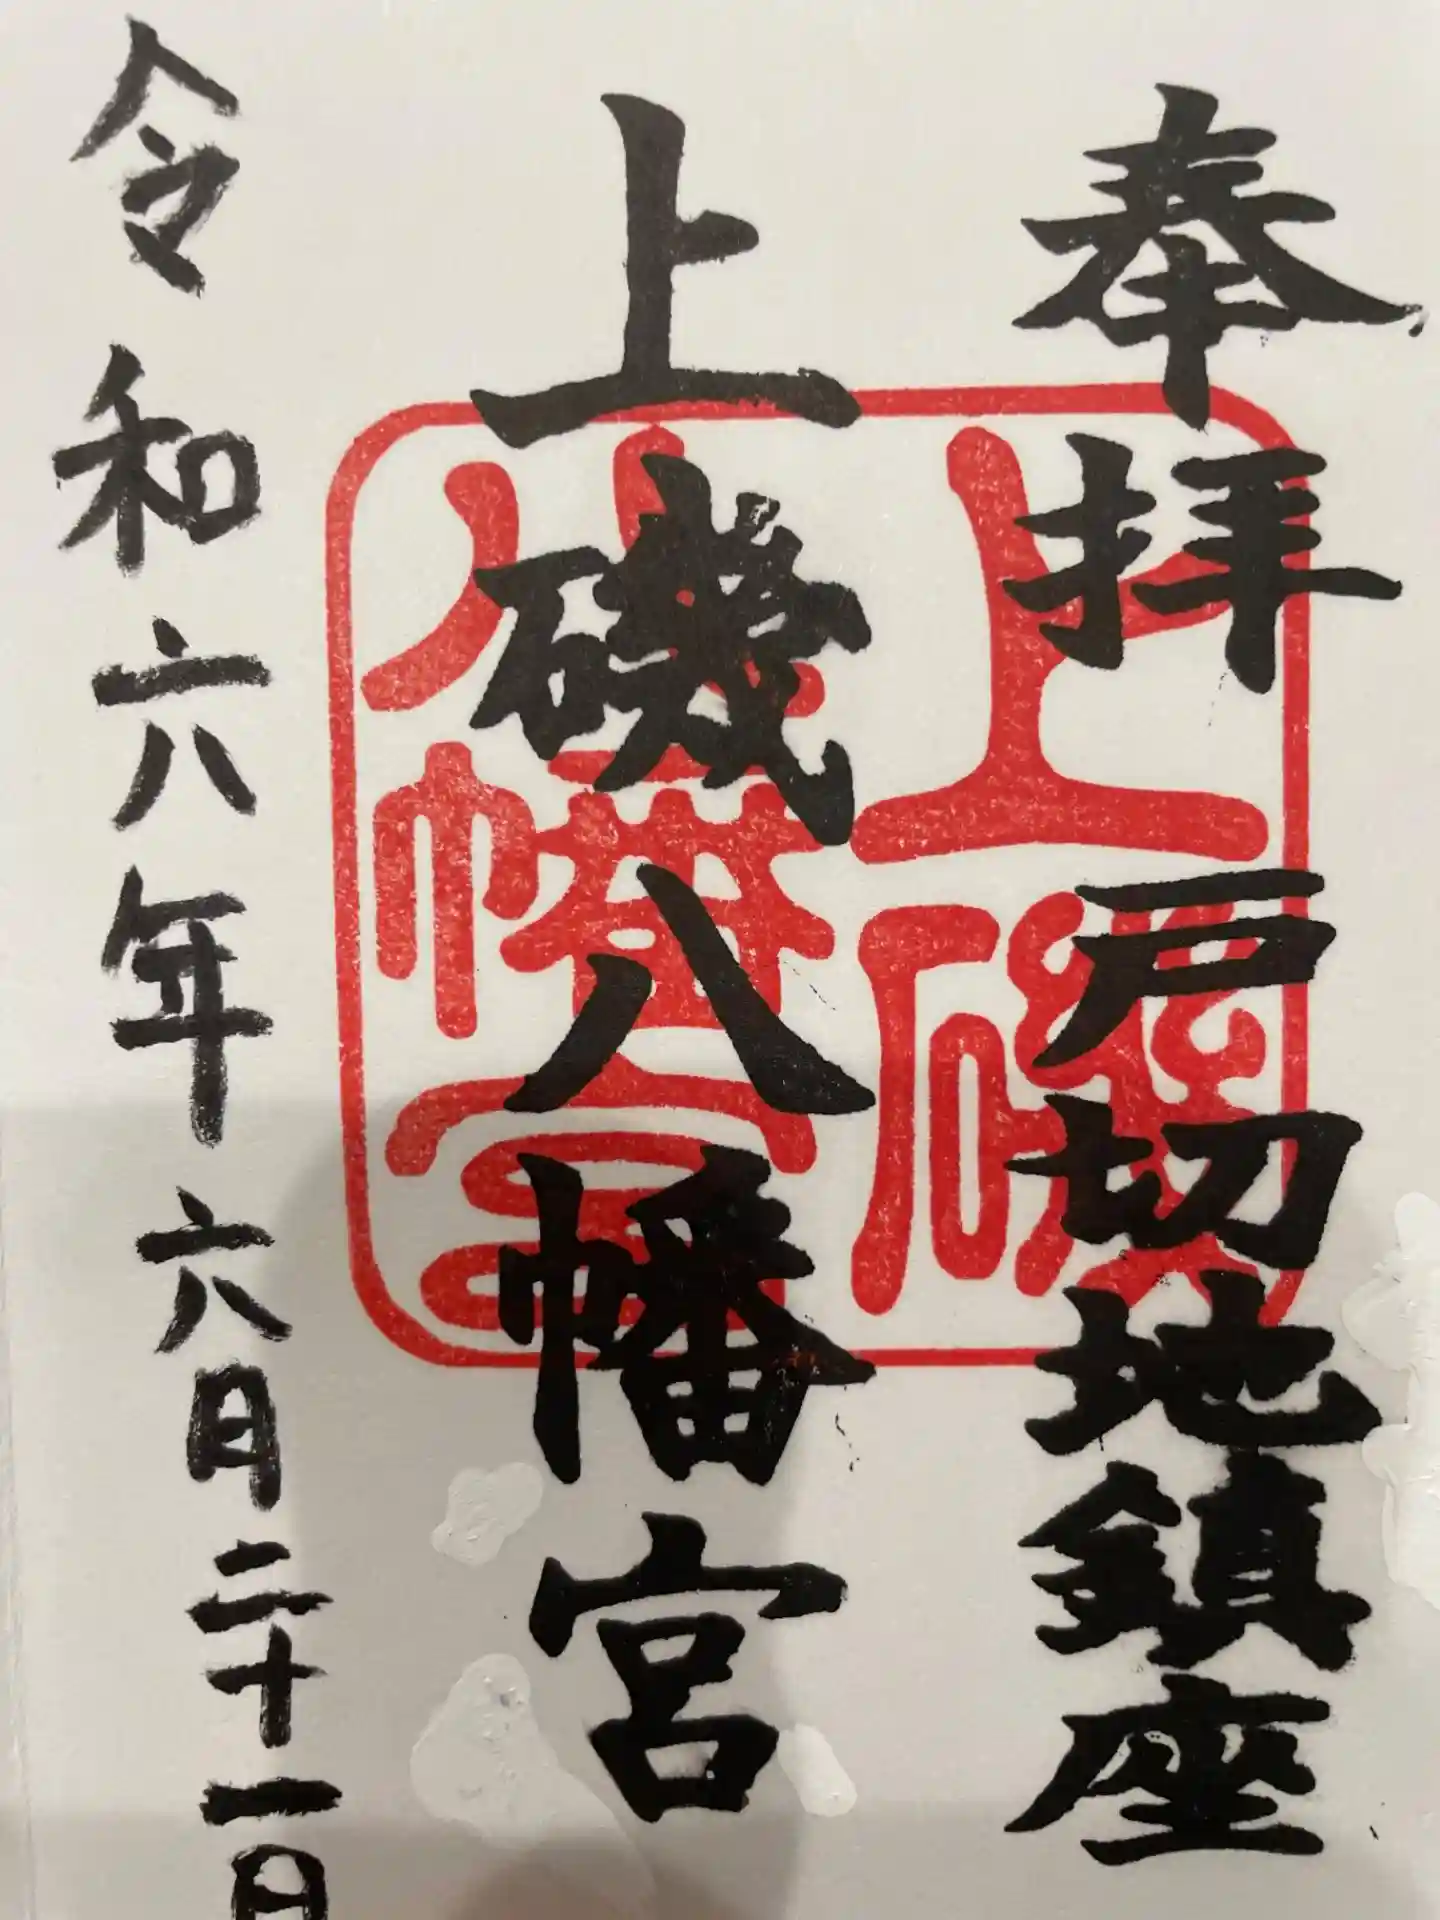 奉拝 戸切地鎮座
上磯八幡宮
上磯八幡宮
令和六年六月二十一日